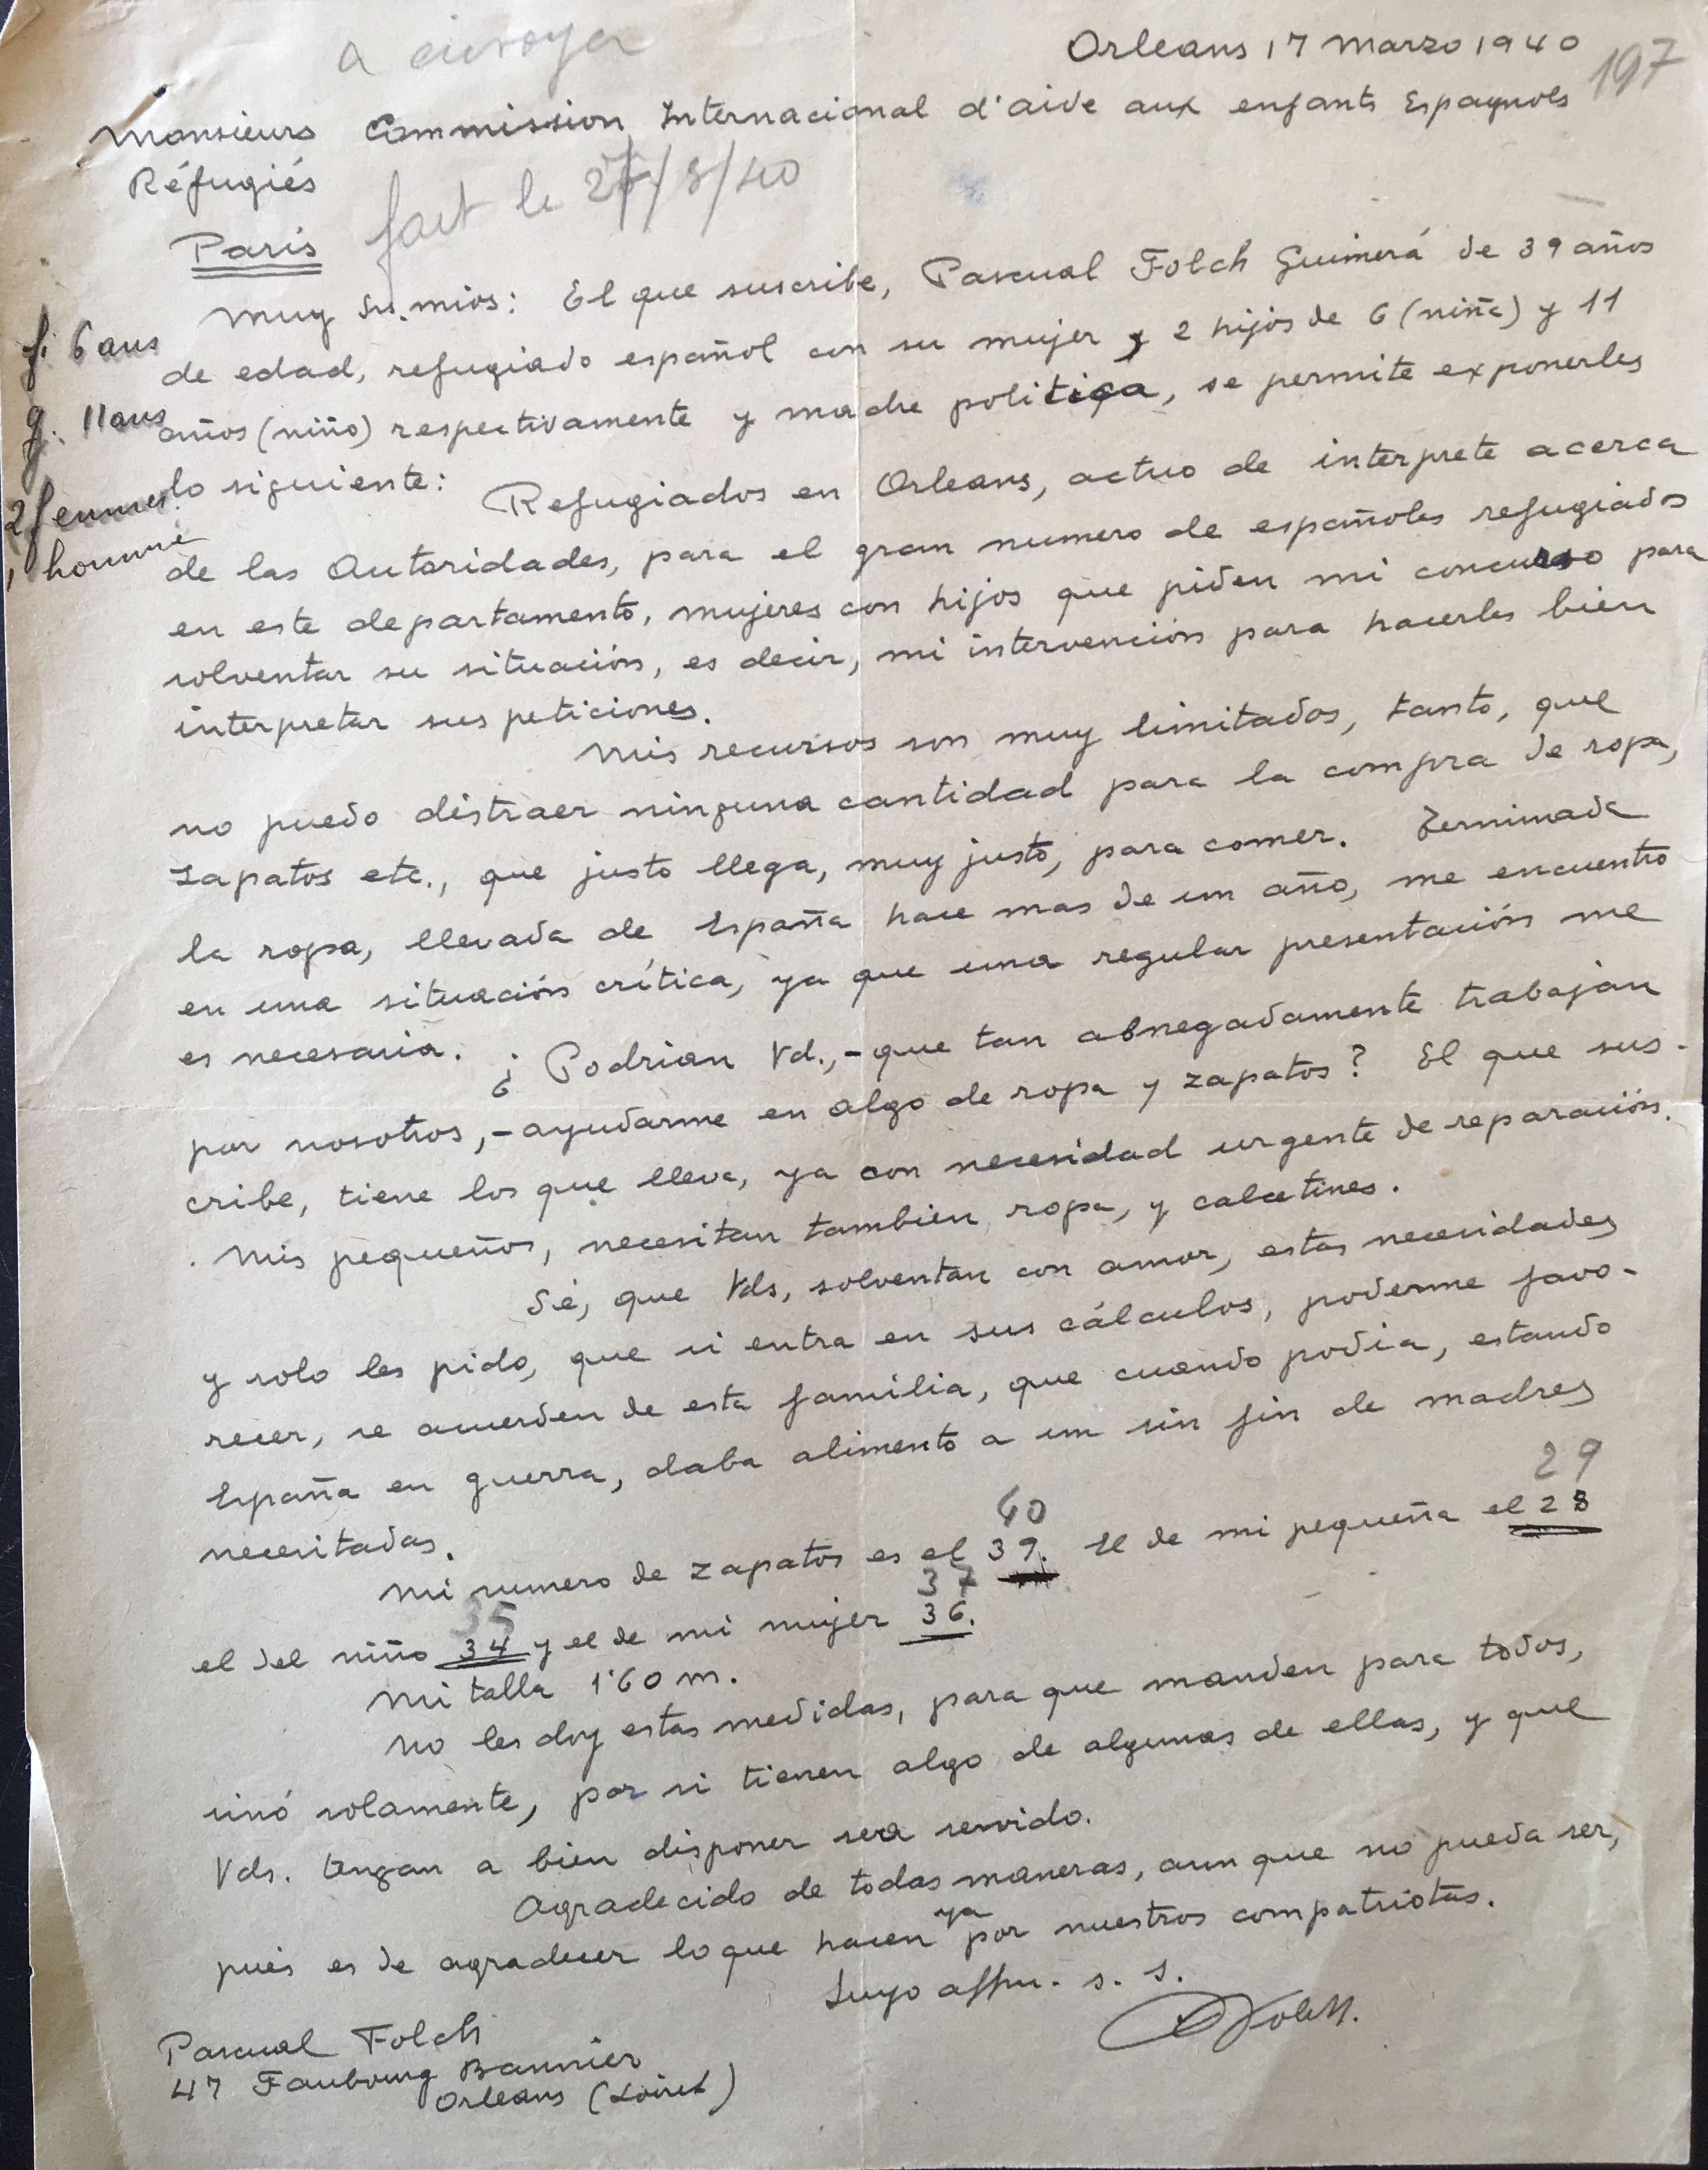 a envoyer
Orleans 17 Marzo 1940
197
Monsieurs Commission Internacional d'aide aux enfants Espagnols
Réfugiés
fait le /3/40
Paris
Muy Srs. mios: El que suscribe, Pascual Folch Guimerá de 39 años
f: 6 ans
de edad, refugiado español con su mujer y 2 hijos de 6 (niña) y 11
g: 11 ans
años (niño) respectivamente y madre politica, se permite exponerles
2 femmes
lo siguiente:
1 homme
Refugiados en Orleans, actuo de interprete acerca
de las Autoridades, para el gran numero de españoles refugiados
en este departamento, mujeres con hijos que piden mi concurso para
solventar su situación, es decir, mi intervención para hacerles bien
interpretar sus peticiones.
Mis recursos son muy limitados, tanto, que
no puedo distraer ninguna cantidad para la compra de ropa,
zapatos etc., que justo llega, muy justo, para comer. Terminada
la ropa, llevada de España hace mas de un año, me encuentro
en una situación crítica, ya que una regular presentación me
es necesaria. ¿Podrian Vd.,-que tan abnegadamente trabajan
por nosotros,-ayudarme en algo de ropa y zapatos? El que sus-
cribe, tiene los que lleva, ya con necesidad urgente de reparación.
. Mis pequeños, necesitan tambien ropa, y calcetines.
Sé, que Vds, solventan con amor, estas necesidades
y solo les pido, que si entra en sus cálculos, poderme favo-
recer, se acuerden de esta familia, que cuando podia, estando
España en guerra, daba alimento a un sin fin de madres
necesitadas.
40
29
Mi numero de zapatos es el 39. El de mi pequeña el 28
35
37
el del niño 34 y el de mi mujer 36.
Mi talla 1'60 m.
No les doy estas medidas, para que manden para todos,
sinó solamente, por si tienen algo de algunas de ellas, y que
Vds. tengan a bien disponer sera servido.
Agradecido de todas maneras, aun que no pueda ser,
pues es de agradecer lo que hacen ya por nuestros compatriotas.
Suyo affmo. s. s.
Folch.
Pascual Folch
47 Faubourg Bannier
Orleans (Loiret)